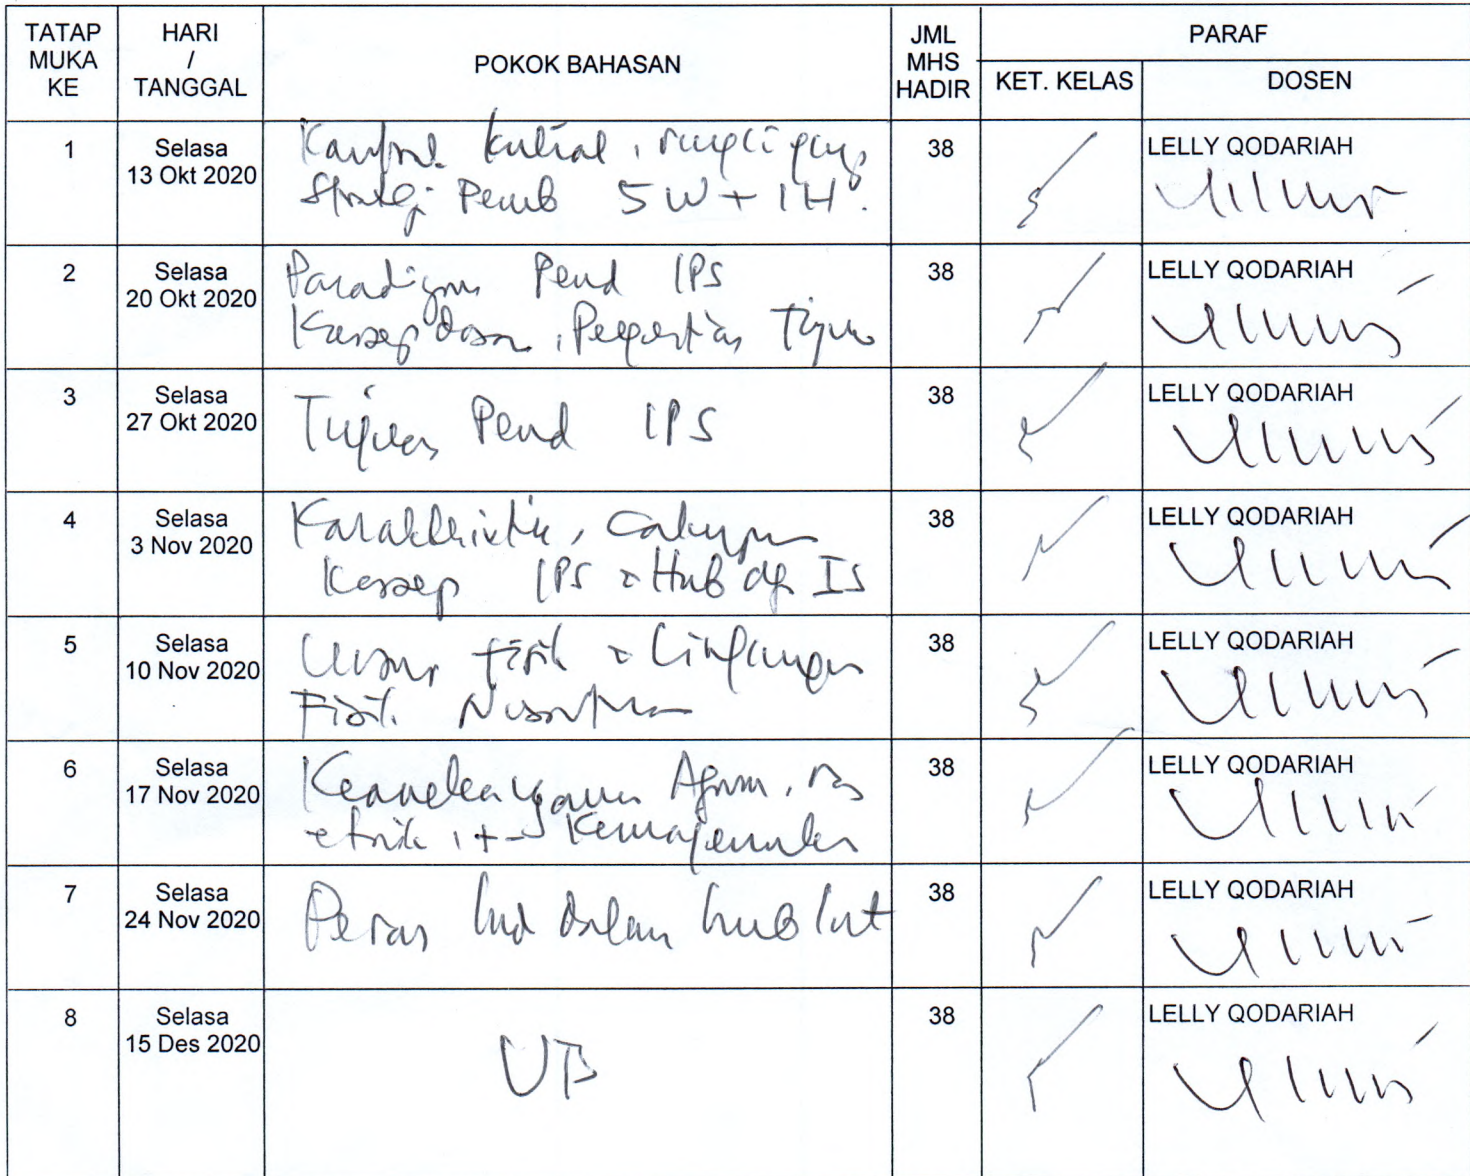 TATAP MUKA KE
HARI / TANGGAL
POKOK BAHASAN
JML MHS HADIR
PARAF
KET. KELAS
DOSEN
1
Selasa
13 Okt 2020
5W + 1H.
38
LELLY QODARIAH
2
Selasa
20 Okt 2020
Paradigma Pend IPS
Konsep dasar, Pengertian Tujuan
38
LELLY QODARIAH
3
Selasa
27 Okt 2020
Tujuan Pend IPS
38
LELLY QODARIAH
4
Selasa
3 Nov 2020
Karakteristik, cakupan
Konsep IPS & Hub dg IS
38
LELLY QODARIAH
5
Selasa
10 Nov 2020
Unsur fisik & Lingkungan
Fisik Nusantara
38
LELLY QODARIAH
6
Selasa
17 Nov 2020
Keanekaragaman Agama, ras
etnik, Kemajemukan
38
LELLY QODARIAH
7
Selasa
24 Nov 2020
Peran Ind dalam hub Int
38
LELLY QODARIAH
8
Selasa
15 Des 2020
38
LELLY QODARIAH